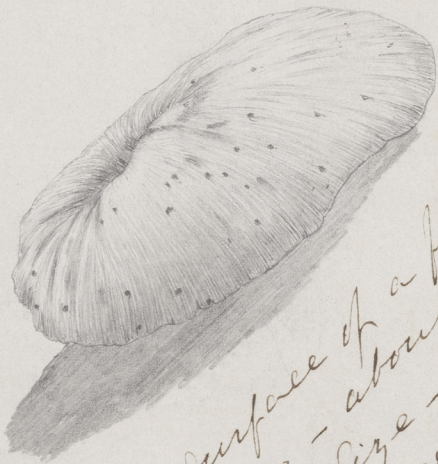 surface of a
- about
size -